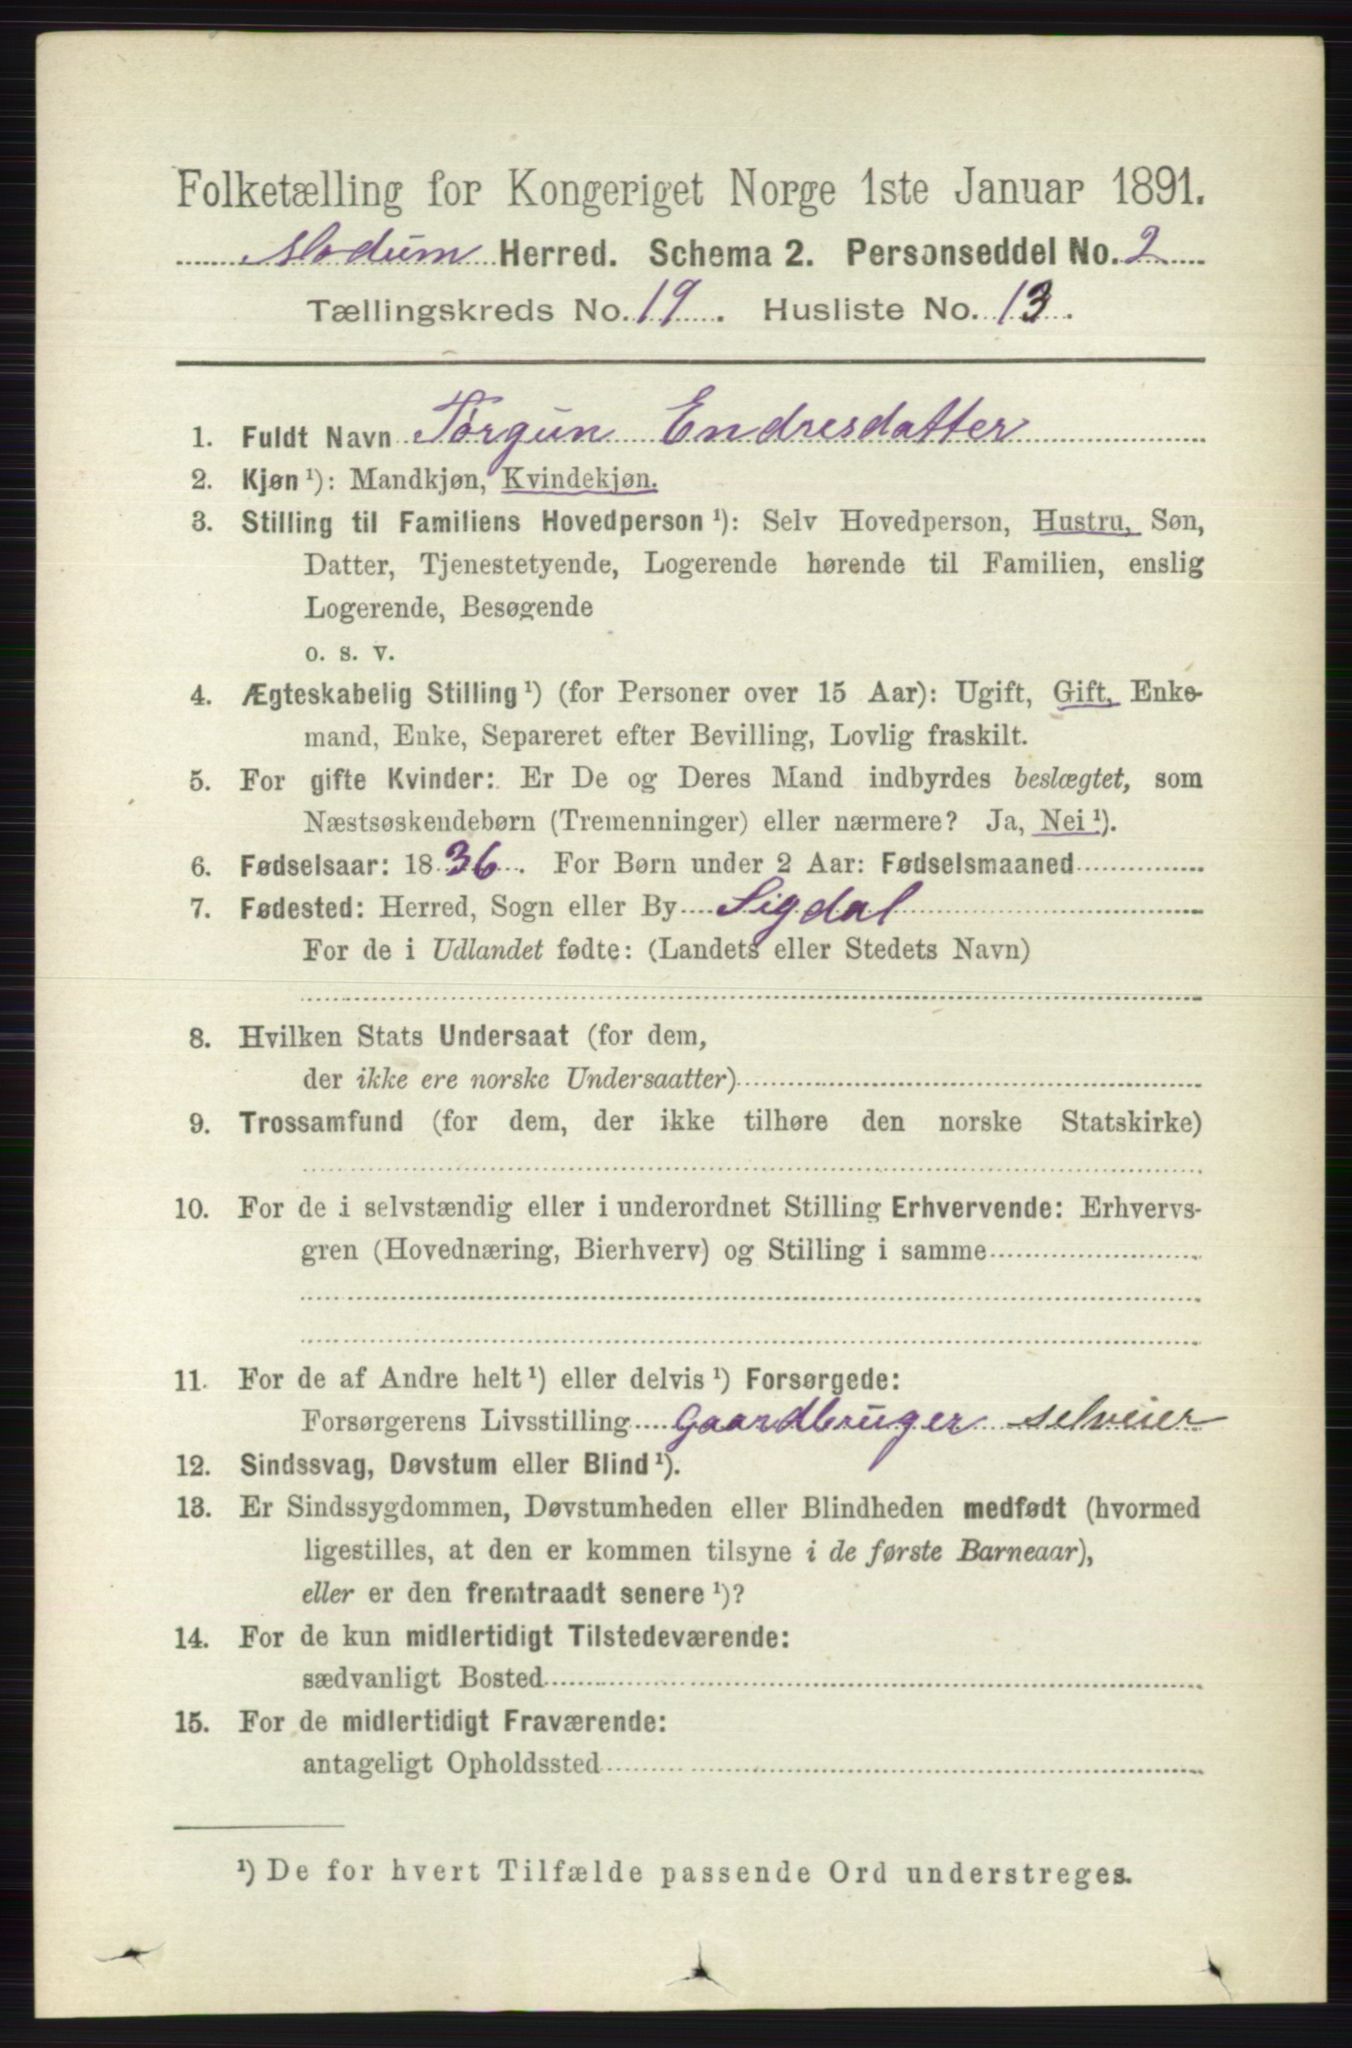 Folketælling for Kongeriget Norge 1ste Januar 1891.
Modum Herred. Schema 2. Personseddel No. 2
Tællingskreds No. 19. Husliste No. 13.
1. Fuldt Navn Törgun Endresdatter
2. Kjøn ¹): Mandkjøn, Kvindekjøn.
3. Stilling til Familiens Hovedperson ¹): Selv Hovedperson, Hustru, Søn,
Datter, Tjenestetyende, Logerende hørende til Familien, enslig
Logerende, Besøgende
o. s. v.
4. Ægteskabelig Stilling ¹) (for Personer over 15 Aar): Ugift, Gift, Enke-
mand, Enke, Separeret efter Bevilling, Lovlig fraskilt.
5. For gifte Kvinder: Er De og Deres Mand indbyrdes beslægtet, som
Næstsøskendebørn (Tremenninger) eller nærmere? Ja, Nei ¹).
6. Fødselsaar: 1836. For Børn under 2 Aar: Fødselsmaaned
7. Fødested: Herred, Sogn eller By Sigdal
For de i Udlandet fødte: (Landets eller Stedets Navn)
8. Hvilken Stats Undersaat (for dem,
der ikke ere norske Undersaatter)
9. Trossamfund (for dem, der ikke tilhøre den norske Statskirke)
10. For de i selvstændig eller i underordnet Stilling Erhvervende: Erhvervs-
gren (Hovednæring, Bierhverv) og Stilling i samme
11. For de af Andre helt ¹) eller delvis ¹) Forsørgede:
Forsørgerens Livsstilling Gaardbruger selveier
12. Sindssvag, Døvstum eller Blind ¹).
13. Er Sindssygdommen, Døvstumheden eller Blindheden medfødt (hvormed
ligestilles, at den er kommen tilsyne i de første Barneaar),
eller er den fremtraadt senere ¹)?
14. For de kun midlertidigt Tilstedeværende:
sædvanligt Bosted
15. For de midlertidigt Fraværende:
antageligt Opholdssted
¹) De for hvert Tilfælde passende Ord understreges.